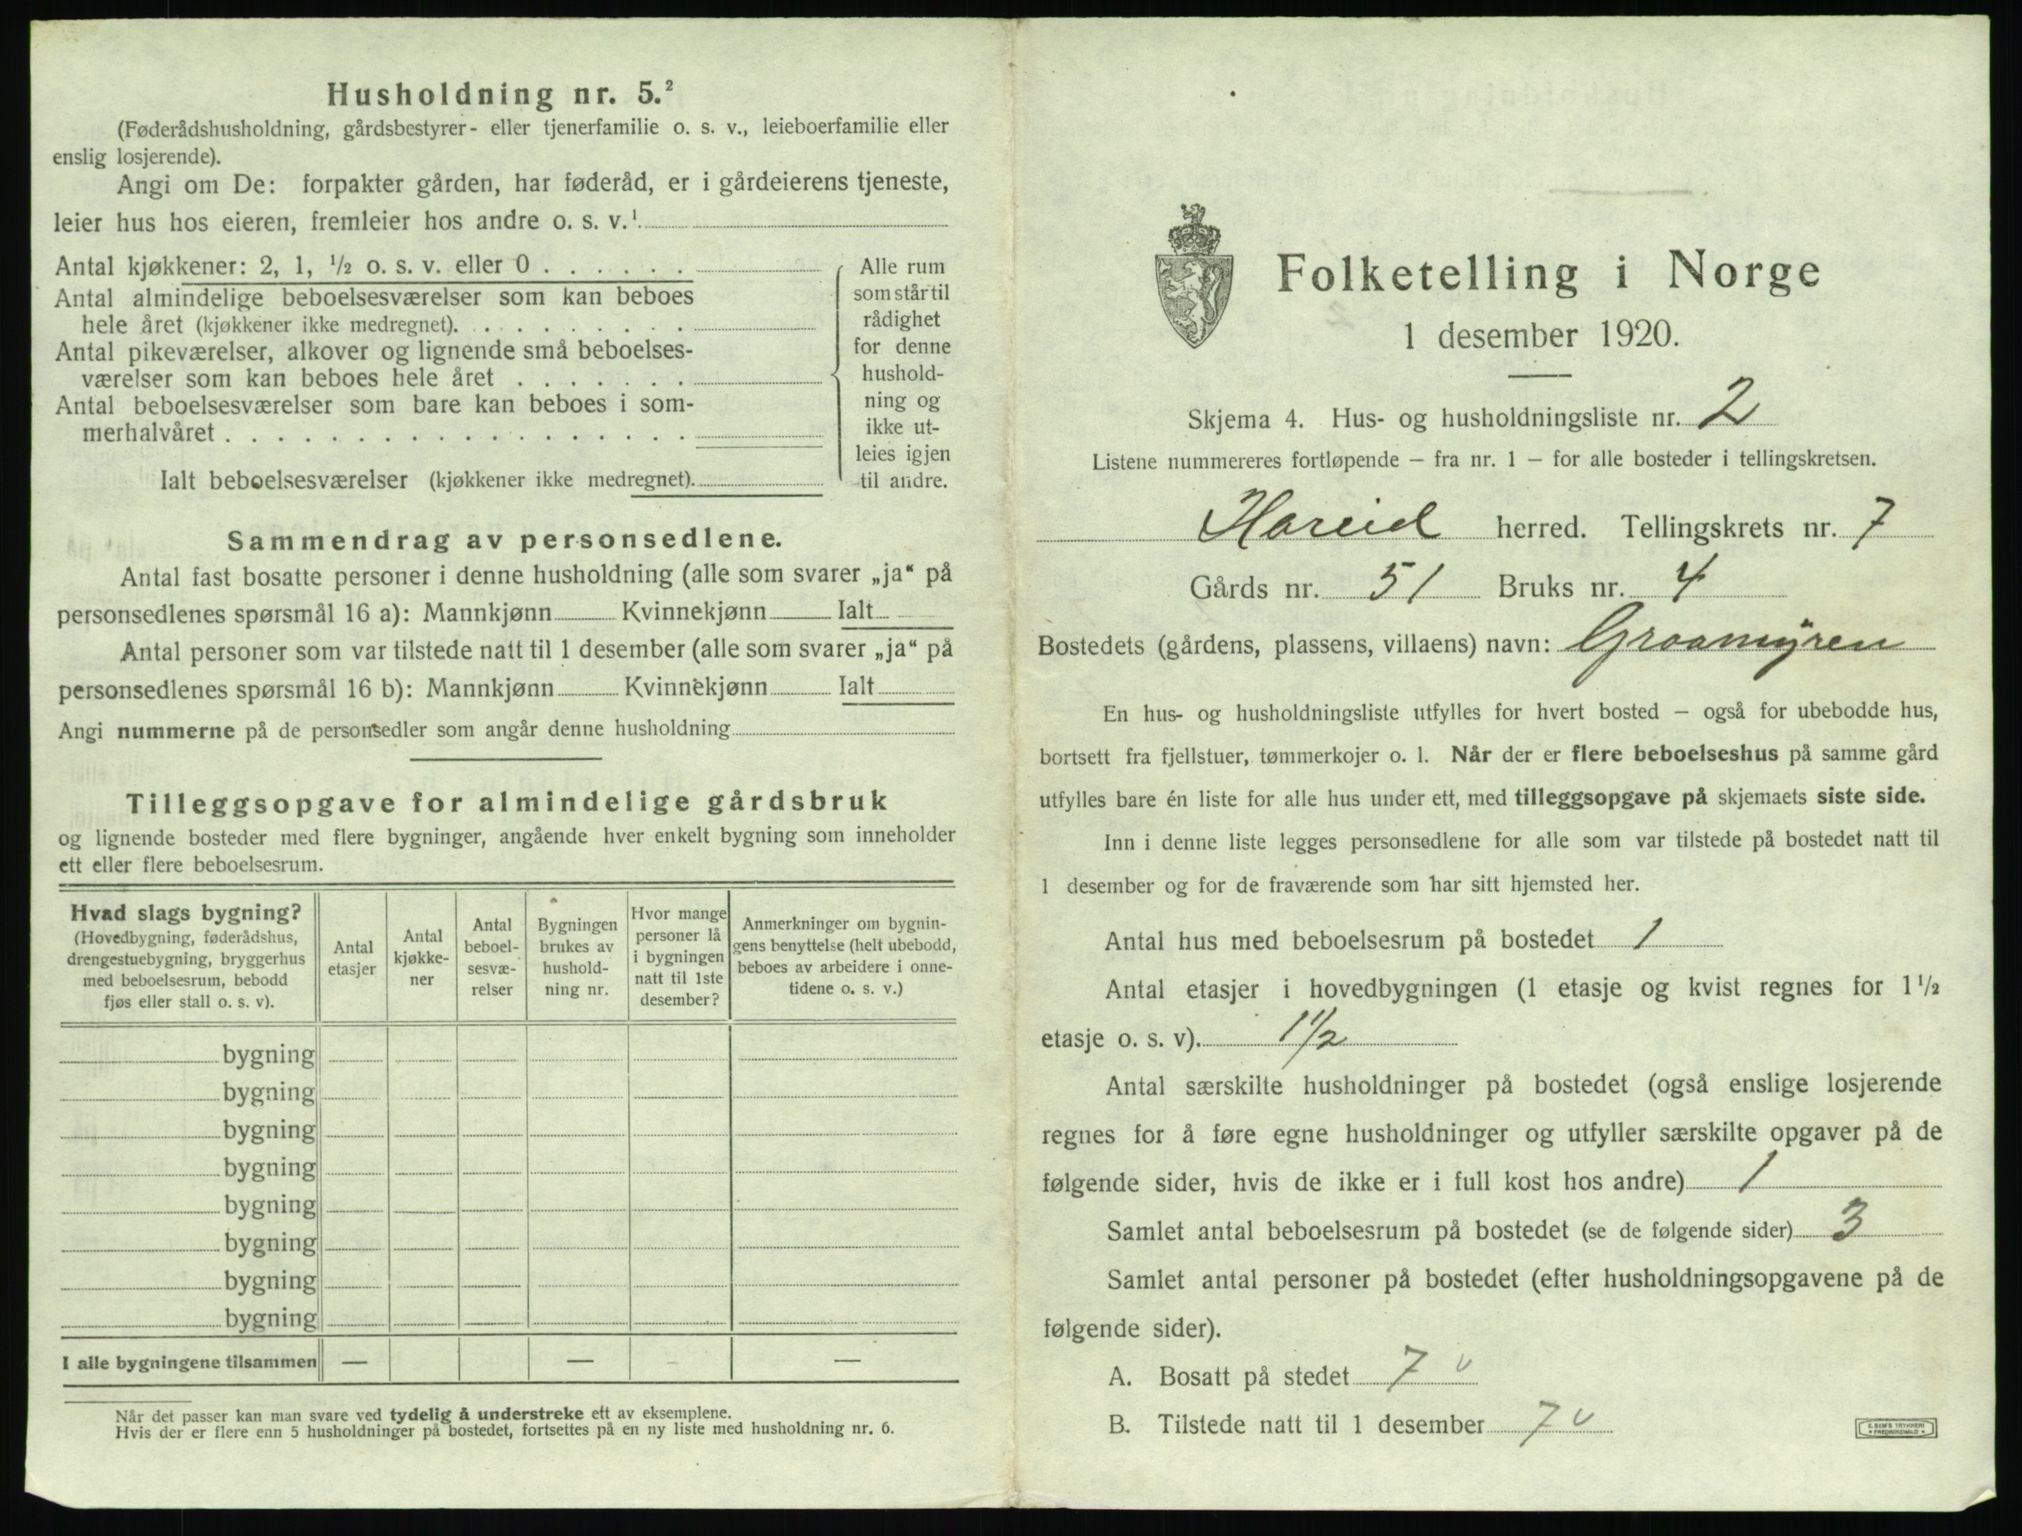 Husholdning nr. 5.²
(Føderådshusholdning, gårdsbestyrer- eller tjenerfamilie o. s. v., leieboerfamilie eller
enslig losjerende).
Angi om De: forpakter gården, har føderåd, er i gårdeierens tjeneste,
leier hus hos eieren, fremleier hos andre o. s. v.¹
Antal kjøkkener: 2, 1, ½ o. s. v. eller 0 . . . . . .
Antal almindelige beboelsesværelser som kan beboes
hele året (kjøkkener ikke medregnet). . . . . . . . .
Antal pikeværelser, alkover og lignende små beboelses-
værelser som kan beboes hele året . . . . . . .
Antal beboelsesværelser som bare kan beboes i som-
merhalvåret . . . . . . . . . . . . . . . . . .
Ialt beboelsesværelser (kjøkkener ikke medregnet).
Alle rum
som står til
rådighet
for denne
hushold-
ning og
ikke ut-
leies igjen
til andre.
Sammendrag av personsedlene.
Antal fast bosatte personer i denne husholdning (alle som svarer „ja“ på
personsedlenes spørsmål 16 a): Mannkjønn Kvinnekjønn Ialt
Antal personer som var tilstede natt til 1 desember (alle som svarer „ja“ på
personsedlenes spørsmål 16 b): Mannkjønn Kvinnekjønn Ialt
Angi nummerne på de personsedler som angår denne husholdning
Tilleggsopgave for almindelige gårdsbruk
og lignende bosteder med flere bygninger, angående hver enkelt bygning som inneholder
ett eller flere beboelsesrum.
Hvad slags bygning?
(Hovedbygning, føderådshus,
drengestuebygning, bryggerhus
med beboelsesrum, bebodd
fjøs eller stall o. s. v).
Antal
etasjer
Antal
kjøkke-
ner
Antal
beboel-
sesvæ-
relser
Bygningen
brukes av
hushold-
ning nr.
Hvor mange
personer lå
i bygningen
natt til 1ste
desember?
Anmerkninger om bygnin-
gens benyttelse (helt ubebodd,
beboes av arbeidere i onne-
tidene o. s. v.)
bygning
bygning
bygning
bygning
bygning
bygning
bygning
bygning
I alle bygningene tilsammen — — — —
Når det passer kan man svare ved tydelig å understreke ett av eksemplene.
Hvis der er flere enn 5 husholdninger på bostedet, fortsettes på en ny liste med husholdning nr. 6.
Folketelling i Norge
1 desember 1920.
Skjema 4. Hus- og husholdningsliste nr. 2
Listene nummereres fortløpende — fra nr. 1 — for alle bosteder i tellingskretsen.
Hareid herred. Tellingskrets nr. 7
Gårds nr. 51 Bruks nr. 4
Bostedets (gårdens, plassens, villaens) navn: Graamyren
En hus- og husholdningsliste utfylles for hvert bosted — også for ubebodde hus,
bortsett fra fjellstuer, tømmerkojer o. l. Når der er flere beboelseshus på samme gård
utfylles bare én liste for alle hus under ett, med tilleggsopgave på skjemaets siste side.
Inn i denne liste legges personsedlene for alle som var tilstede på bostedet natt til
1 desember og for de fraværende som har sitt hjemsted her.
Antal hus med beboelsesrum på bostedet 1
Antal etasjer i hovedbygningen (1 etasje og kvist regnes for 1½
etasje o. s. v). 1½
Antal særskilte husholdninger på bostedet (også enslige losjerende
regnes for å føre egne husholdninger og utfyller særskilte opgaver på de
følgende sider, hvis de ikke er i full kost hos andre) 1
Samlet antal beboelsesrum på bostedet (se de følgende sider) 3
Samlet antal personer på bostedet (efter husholdningsopgavene på de
følgende sider).
A. Bosatt på stedet 7 v
B. Tilstede natt til 1 desember 7 v
E. SEM'S TRYKKERI
FREDRIKSHALD